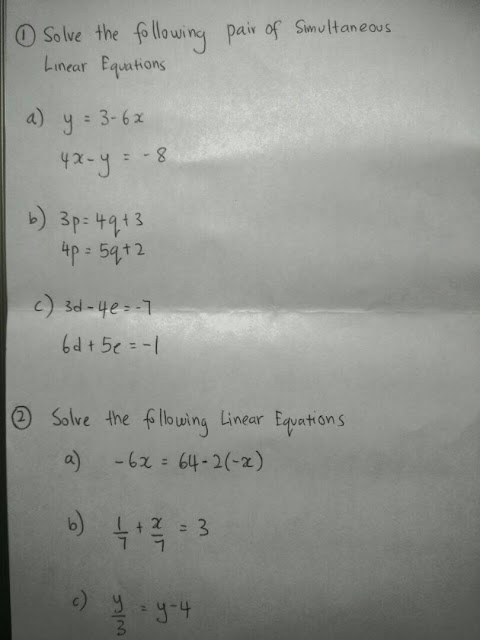 ① Solve the following pair of Simultaneous
Linear Equations
a) y = 3-6x
4x-y = -8
b) 3p = 4q+3
4p = 5q+2
c) 3d-4e = -7
6d+5e = -1
② Solve the following Linear Equations
a) -6x = 64-2(-x)
b) 1/7 + x/7 = 3
c) y/3 = y-4